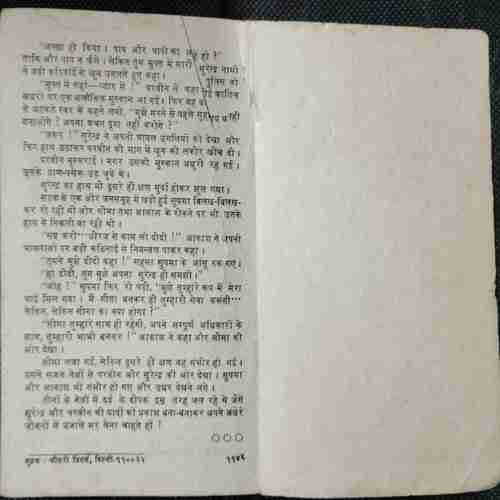 "अच्छा ही किया। पाप और पापी का अंत हो?"
ताकि और पाप न फैले। लेकिन तुम मुफ्त में मारी
ने बड़ी कठिनाई से खून उगलते हुए कहा।
"मुफ्त में कहां—प्यार में!" परवीन ने कहा
अधरों पर एक अलौकिक मुस्कान आ गई। फिर वह
से अटकते स्वर में कहने लगी, "मुझे मरने से पहले
बनाओगे? अपना वचन पूरा नहीं करोगे?"
"जरूर!" सुरेन्द्र ने अपनी घायल उंगलियों को देखा और
फिर हाथ उठाकर परवीन की मांग में खून की लकीर खींच दी।
परवीन मुस्कराई। मगर उसकी मुस्कान अधूरी रह गई।
उसके प्राण-पखेरू उड़ चुके थे।
सुरेन्द्र का हाथ भी दूसरे ही क्षण मुर्दा होकर झूल गया।
सड़क के एक ओर जनसमूह में खड़ी हुई सुषमा बिलख-बिलख-
कर रो रही थी और सीमा तथा आकाश के रोकने पर भी उनके
हाथ से निकली जा रही थी।
"सब्र करो—धीरज से काम लो दीदी!" आकाश ने अपनी
भावनाओं पर बड़ी कठिनाई से नियन्त्रण पाकर कहा।
"तुमने मुझे दीदी कहा!" सहसा सुषमा के आंसू रुक गए।
"हां दीदी, तुम मुझे अपना सुरेन्द्र ही समझो।"
"ओह!" सुषमा फिर रो पड़ी, "मुझे तुम्हारे रूप में मेरा
भाई मिल गया। मैं सीता बनकर ही तुम्हारी सेवा करूंगी…
लेकिन, लेकिन सीमा का क्या होगा?"
"सीमा तुम्हारे साथ ही रहेगी, अपने सम्पूर्ण अधिकारों के
साथ, तुम्हारी भाभी बनकर!" आकाश ने कहा और सीमा की
ओर देखा।
सीमा लजा गई, लेकिन दूसरे ही क्षण वह गंभीर हो गई।
उसने सजल नेत्रों से परवीन और सुरेन्द्र की ओर देखा। सुषमा
और आकाश भी गंभीर हो गए और उधर देखने लगे।
तीनों के नेत्रों में दर्द के दीपक इस तरह जल रहे थे जैसे
सुरेन्द्र और परवीन की यादों को प्रकाश बना-बनाकर अपने अंधेरे
जीवनों में उजाले भर लेना चाहते हों!
○○○
मुद्रक : चौधरी प्रिंटर्स, दिल्ली-११००३२